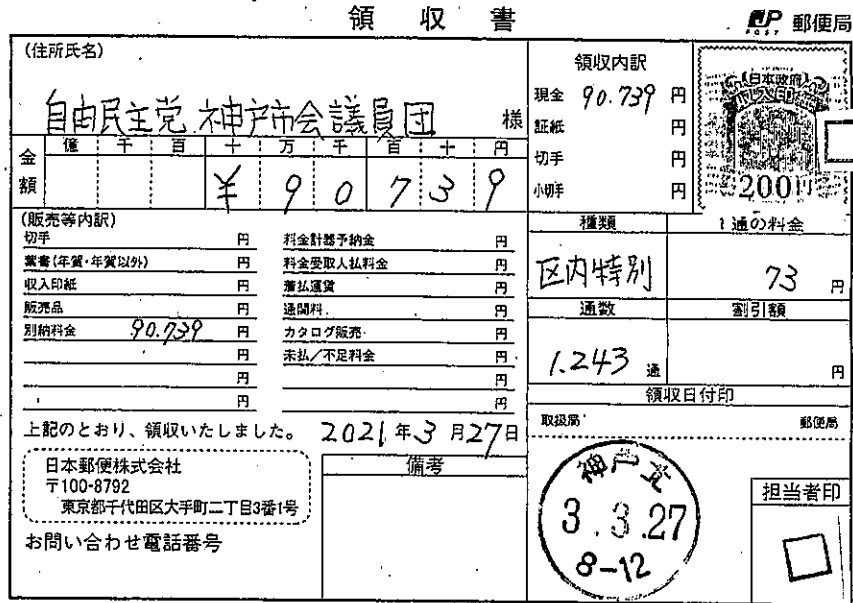 領収書
JP POST 郵便局
(住所氏名)
自由民主党 神戸市会議員団 様
金額
億 千 百 十 万 千 百 十 円
¥ 9 0 7 3 9
領収内訳
現金 90.739 円
証紙 円
切手 円
小切手 円
日本政府
収入印紙
200円
(販売等内訳)
切手 円
葉書(年賀・年賀以外) 円
収入印紙 円
販売品 円
別納料金 90.739 円
円
円
円
料金計器予納金 円
料金受取人払料金 円
着払運賃 円
通関料 円
カタログ販売 円
未払/不足料金 円
円
円
種類 1通の料金
区内特別 73 円
通数 割引額
1.243 通 円
上記のとおり、領収いたしました。 2021年3月27日
日本郵便株式会社
〒100-8792
東京都千代田区大手町二丁目3番1号
お問い合わせ電話番号
備考
領収日付印
取扱局 郵便局
神戸北
3.3.27
8-12
担当者印